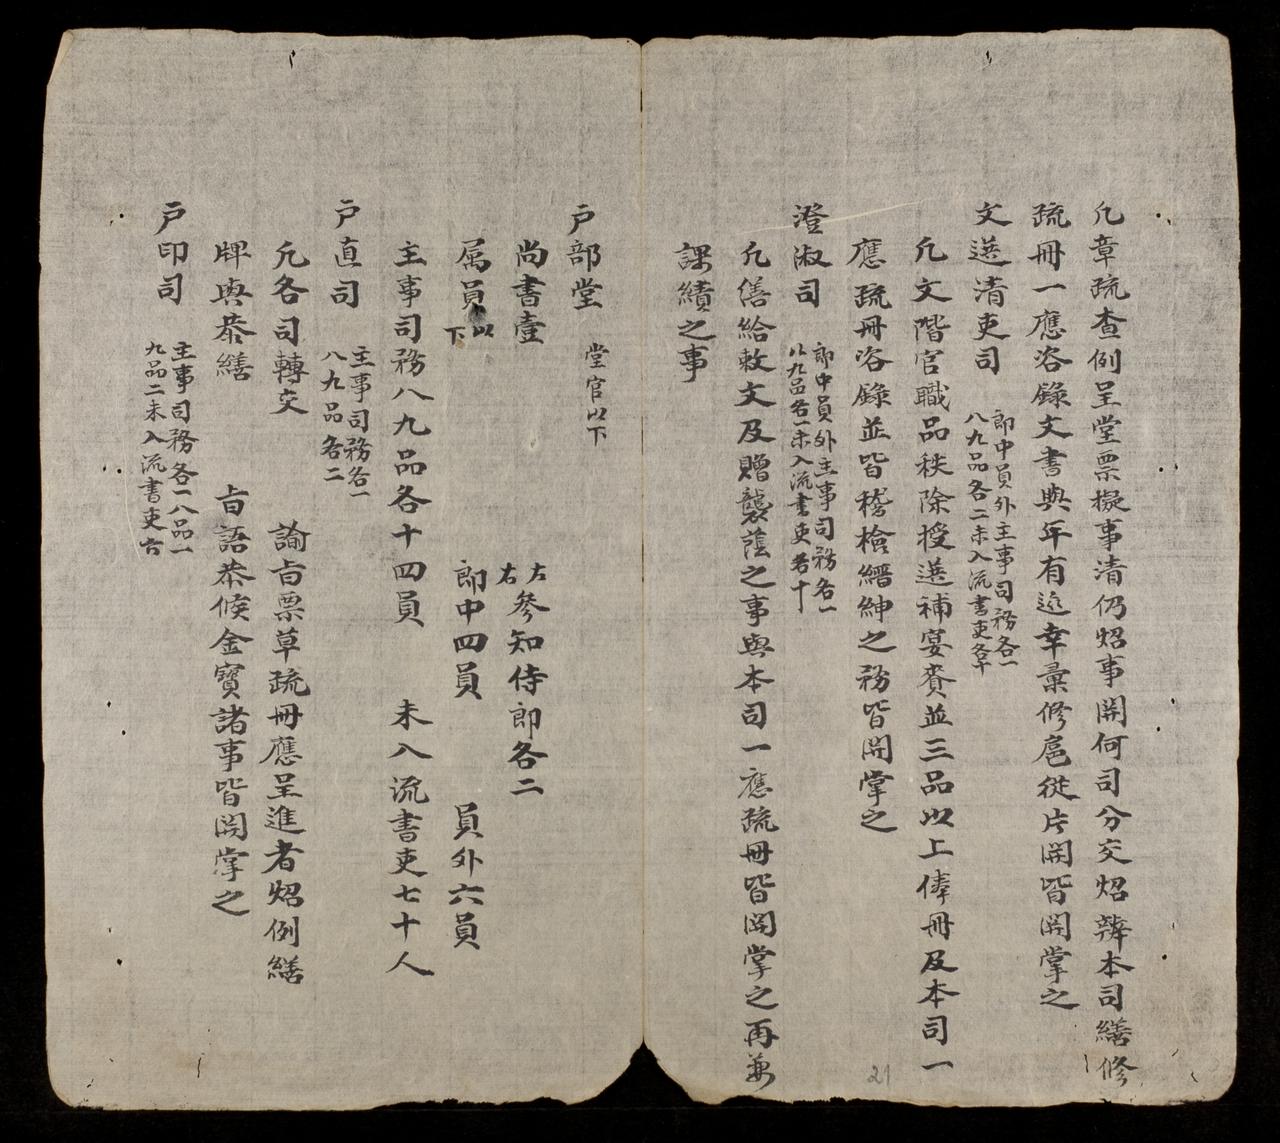 凡章疏查例呈堂票擬事清仍炤事開何司分交炤辦本司繕修
疏冊一應咨錄文書與年有巡幸彙修扈從片開皆開掌之
文選清吏司 郎中員外主事司務各一
八九品各二未入流書吏各十
凡文階官職品秩除授選補宴賚並三品以上俸冊及本司一
應疏冊咨錄並皆稽檢縉紳之務皆開掌之
澄淑司 郎中員外主事司務各一
八九品各一未入流書吏各十
凡繕給敕文及贈襲蔭之事與本司一應疏冊皆開掌之再兼
課績之事
戶部堂 堂官以下
尚書壹 左右參知侍郎各二
属員以下 郎中四員 員外六員
主事司務八九品各十四員 未入流書吏七十人
戶直司 主事司務各一
八九品各二
凡各司轉交 諭旨票草疏冊應呈進者炤例繕
牌與恭繕 旨語恭候金寶諸事皆開掌之
戶印司 主事司務各一八品一
九品二未入流書吏六
21